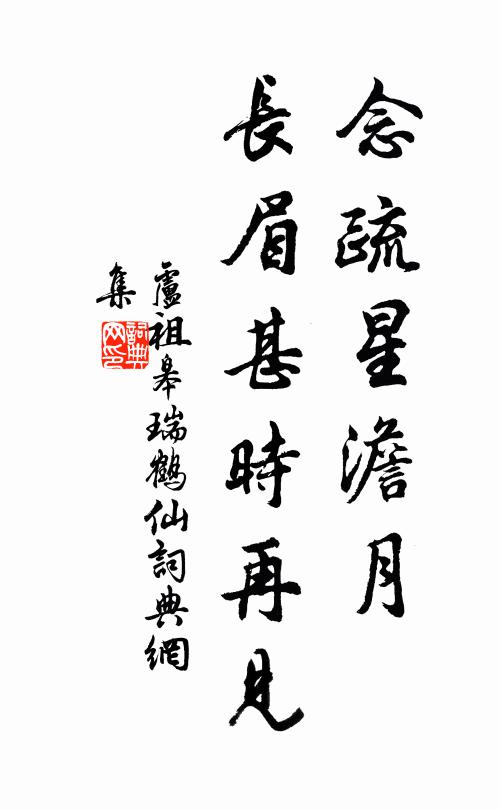 念疏星澹月
長眉甚時再見
盧祖皋瑞鶴仙詞典網
集
詞典
网印